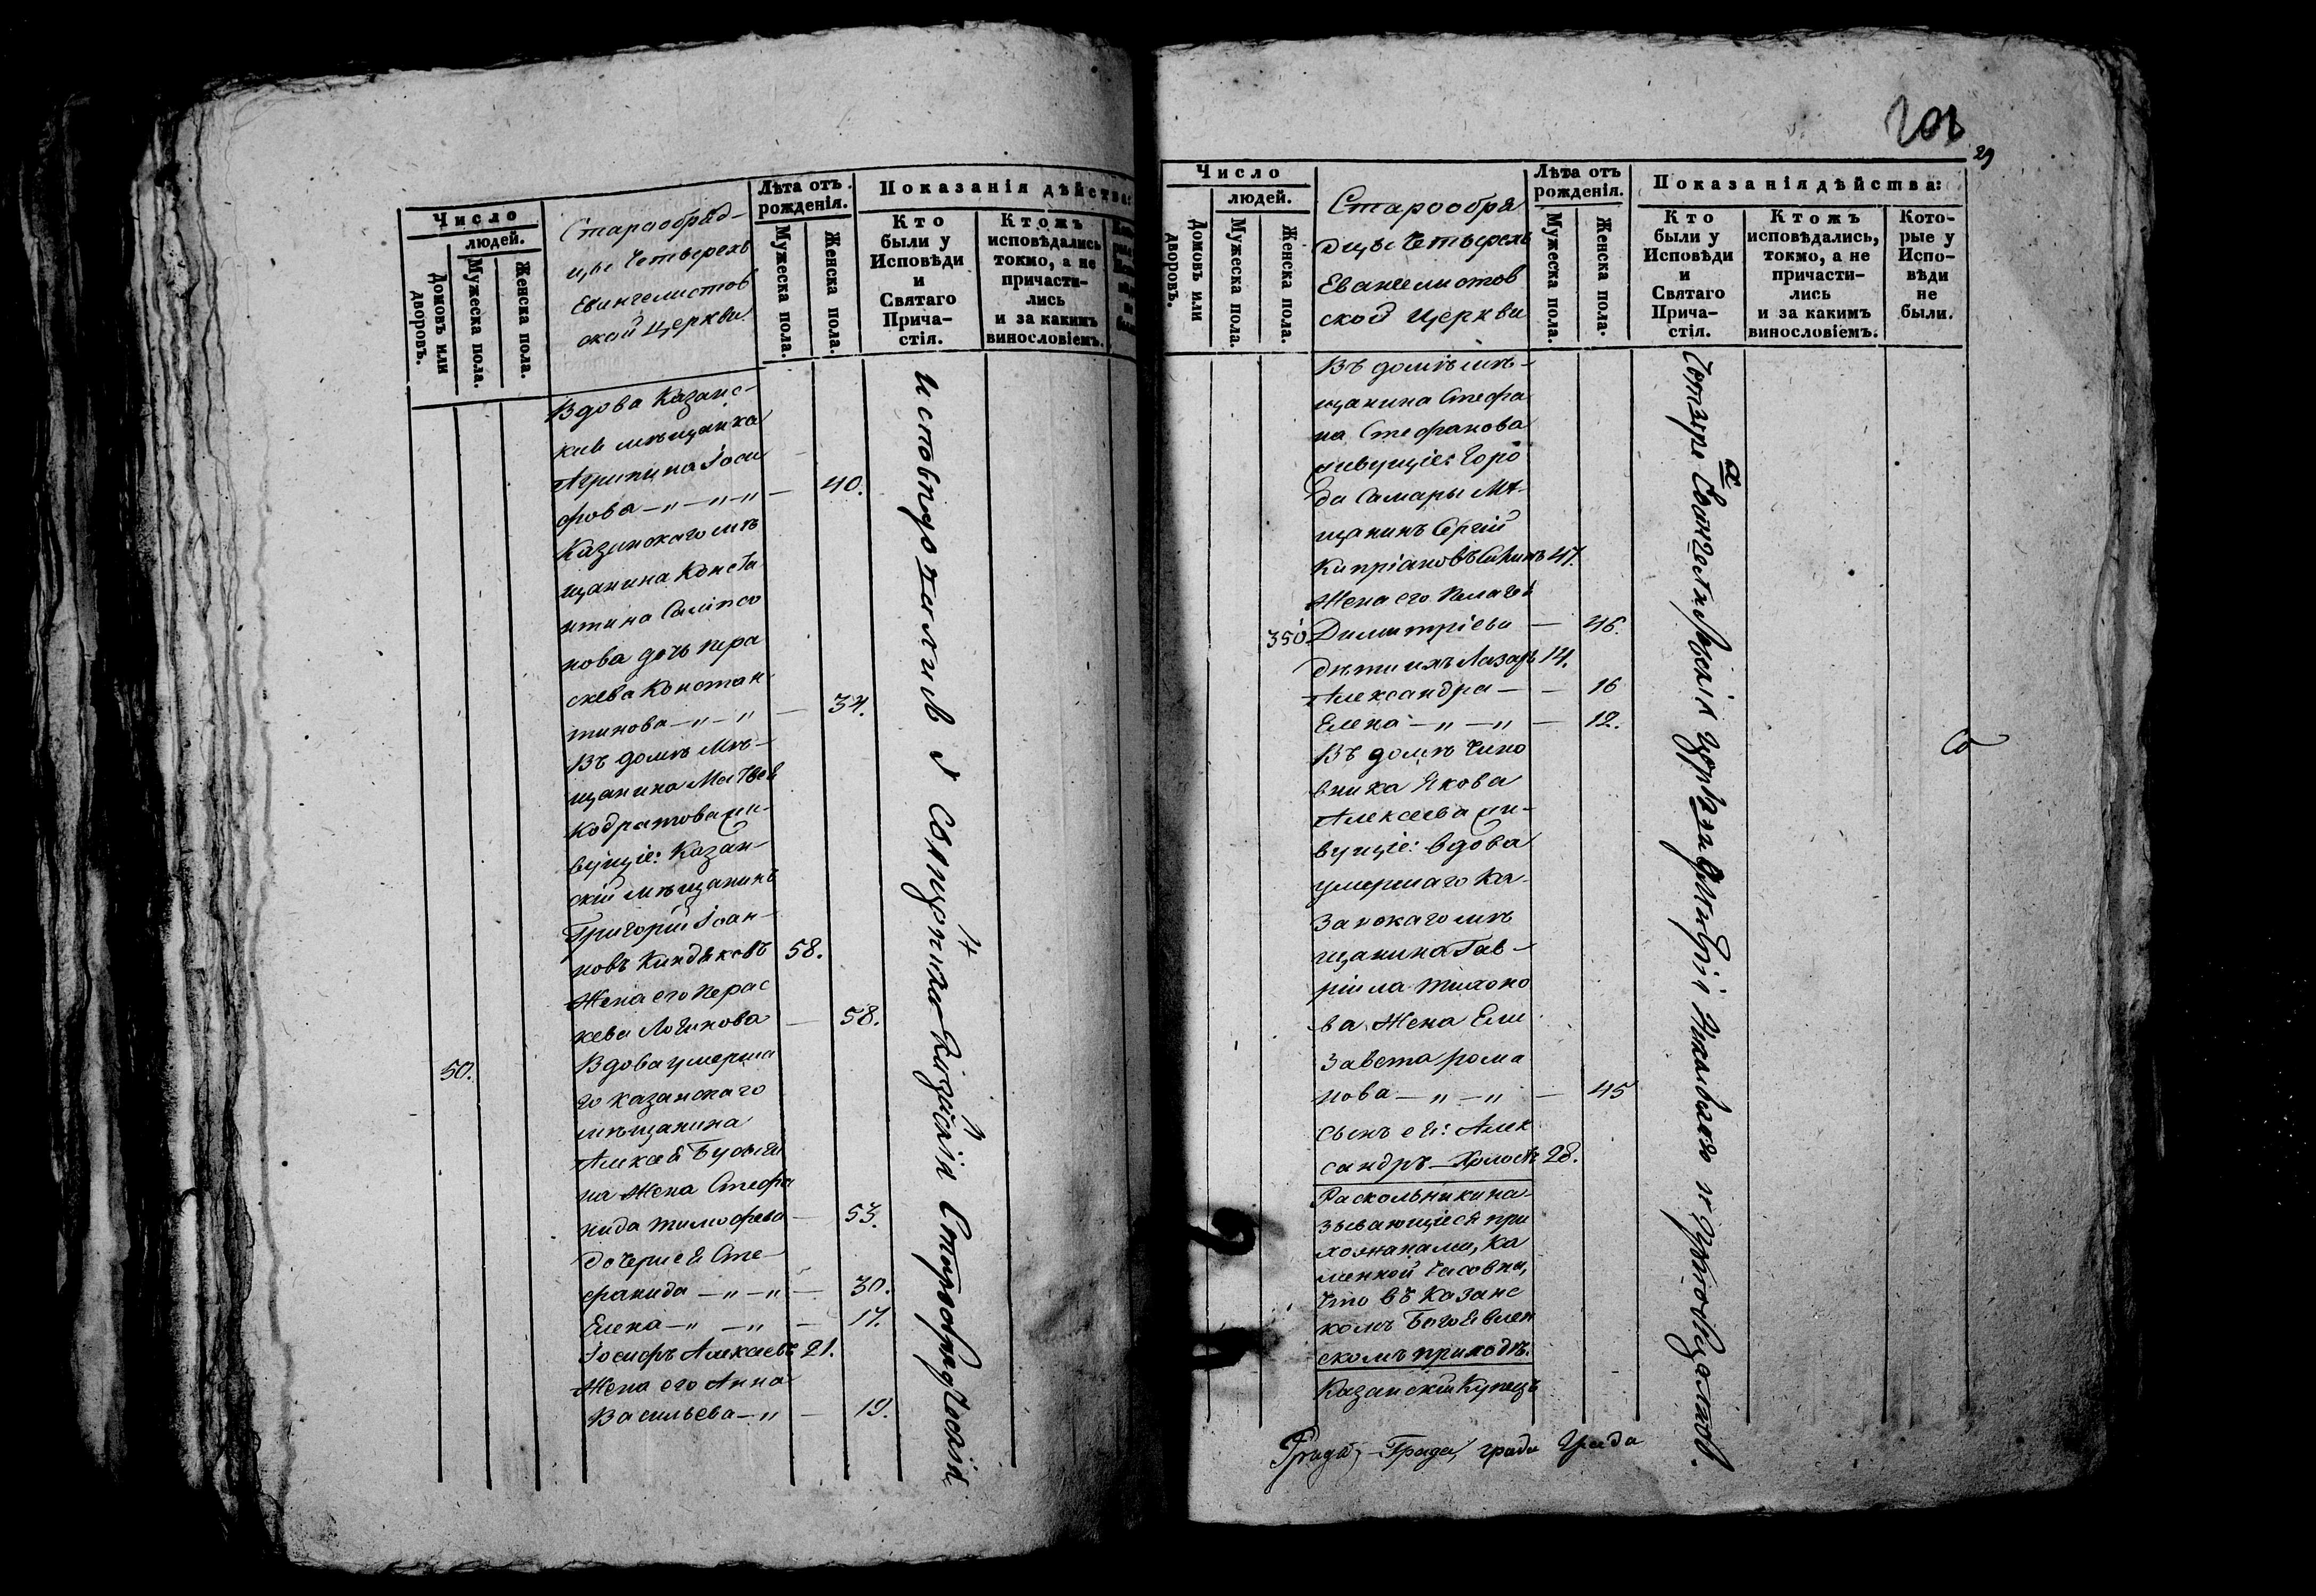 Число
людей.
Домовъ или дворовъ.
Мужеска пола.
Женска пола.
Старообряд-
цы Четырехъ
Евангелистов
ской Церкви
Лѣта отъ рожденія.
Мужеска пола.
Женска пола.
Показанія дѣйства:
Кто были у Исповѣди и Святаго Прича-
стія.
Ктожъ исповѣдались токмо, а не причасти-
лись и за какимъ винословіемъ.
Вдова Казанс-
кая мѣщанка
Агрипина Іоси
фова — „ — „ — „ — 40.
Казанскаго мѣ
щанина Конста
нтина Сампсо
нова дочь Пера
скева Констан
тинова — „ — „ — 34.
Въ домѣ Мѣ-
щанина Матвея
Кодратова жи-
вущіе: Казан-
скій мѣщанинъ
Григорій Іоан-
новъ Киндяковъ 58.
Жена его Перас
кева Логинова — 58.
50. Вдова умерша
го казанскаго
мѣщанина
Алексея
на Жена Стефа
нида Тимофева — 53.
дочери ея Сте-
фанида — „ — „ — 30.
Елена — „ — „ — 17.
Іосифъ Алексеевъ 21.
Жена его Анна
Васильева — „ — 19.
Старообрядческія
29
Число
людей.
Домовъ или дворовъ.
Мужеска пола.
Женска пола.
Старообря
дцы Четырехъ
Евангелистов
ской Церкви
Лѣта отъ рожденія.
Мужеска пола.
Женска пола.
Показанія дѣйства:
Кто были у Исповѣди и Святаго Прича-
стія.
Ктожъ исповѣдались, токмо, а не причасти-
лись и за какимъ винословіемъ.
Кото-
рые у Испо-
вѣди не были.
Въ домѣ мѣ-
щанина Стефа
на Стефанова
живущіе: Горо
да Самары Мѣ-
щанинъ Сергій
Кипріановъ 47.
Жена его Пелагея
350 Димитріева — 46.
дѣти ихъ Лазарь 14.
Александра — — 16
Елена — „ — „ — 12.
Въ домѣ Чино
вника Якова
Алексеева жи-
вущіе: вдова
умершаго Ка-
занскаго мѣ
щанина Гав-
ріила Тихоно
ва Жена Ели
завета Рома
нова — „ — „ — 45
Сынъ ея: Алек
сандръ — Холостъ 28.
Раскольники на-
зывающіеся при
хожанами, Ка
менной Часовни,
что въ Казанс
комъ Богоявлен
скомъ приходѣ.
Казанскій Купецъ
Града, Града, града Града